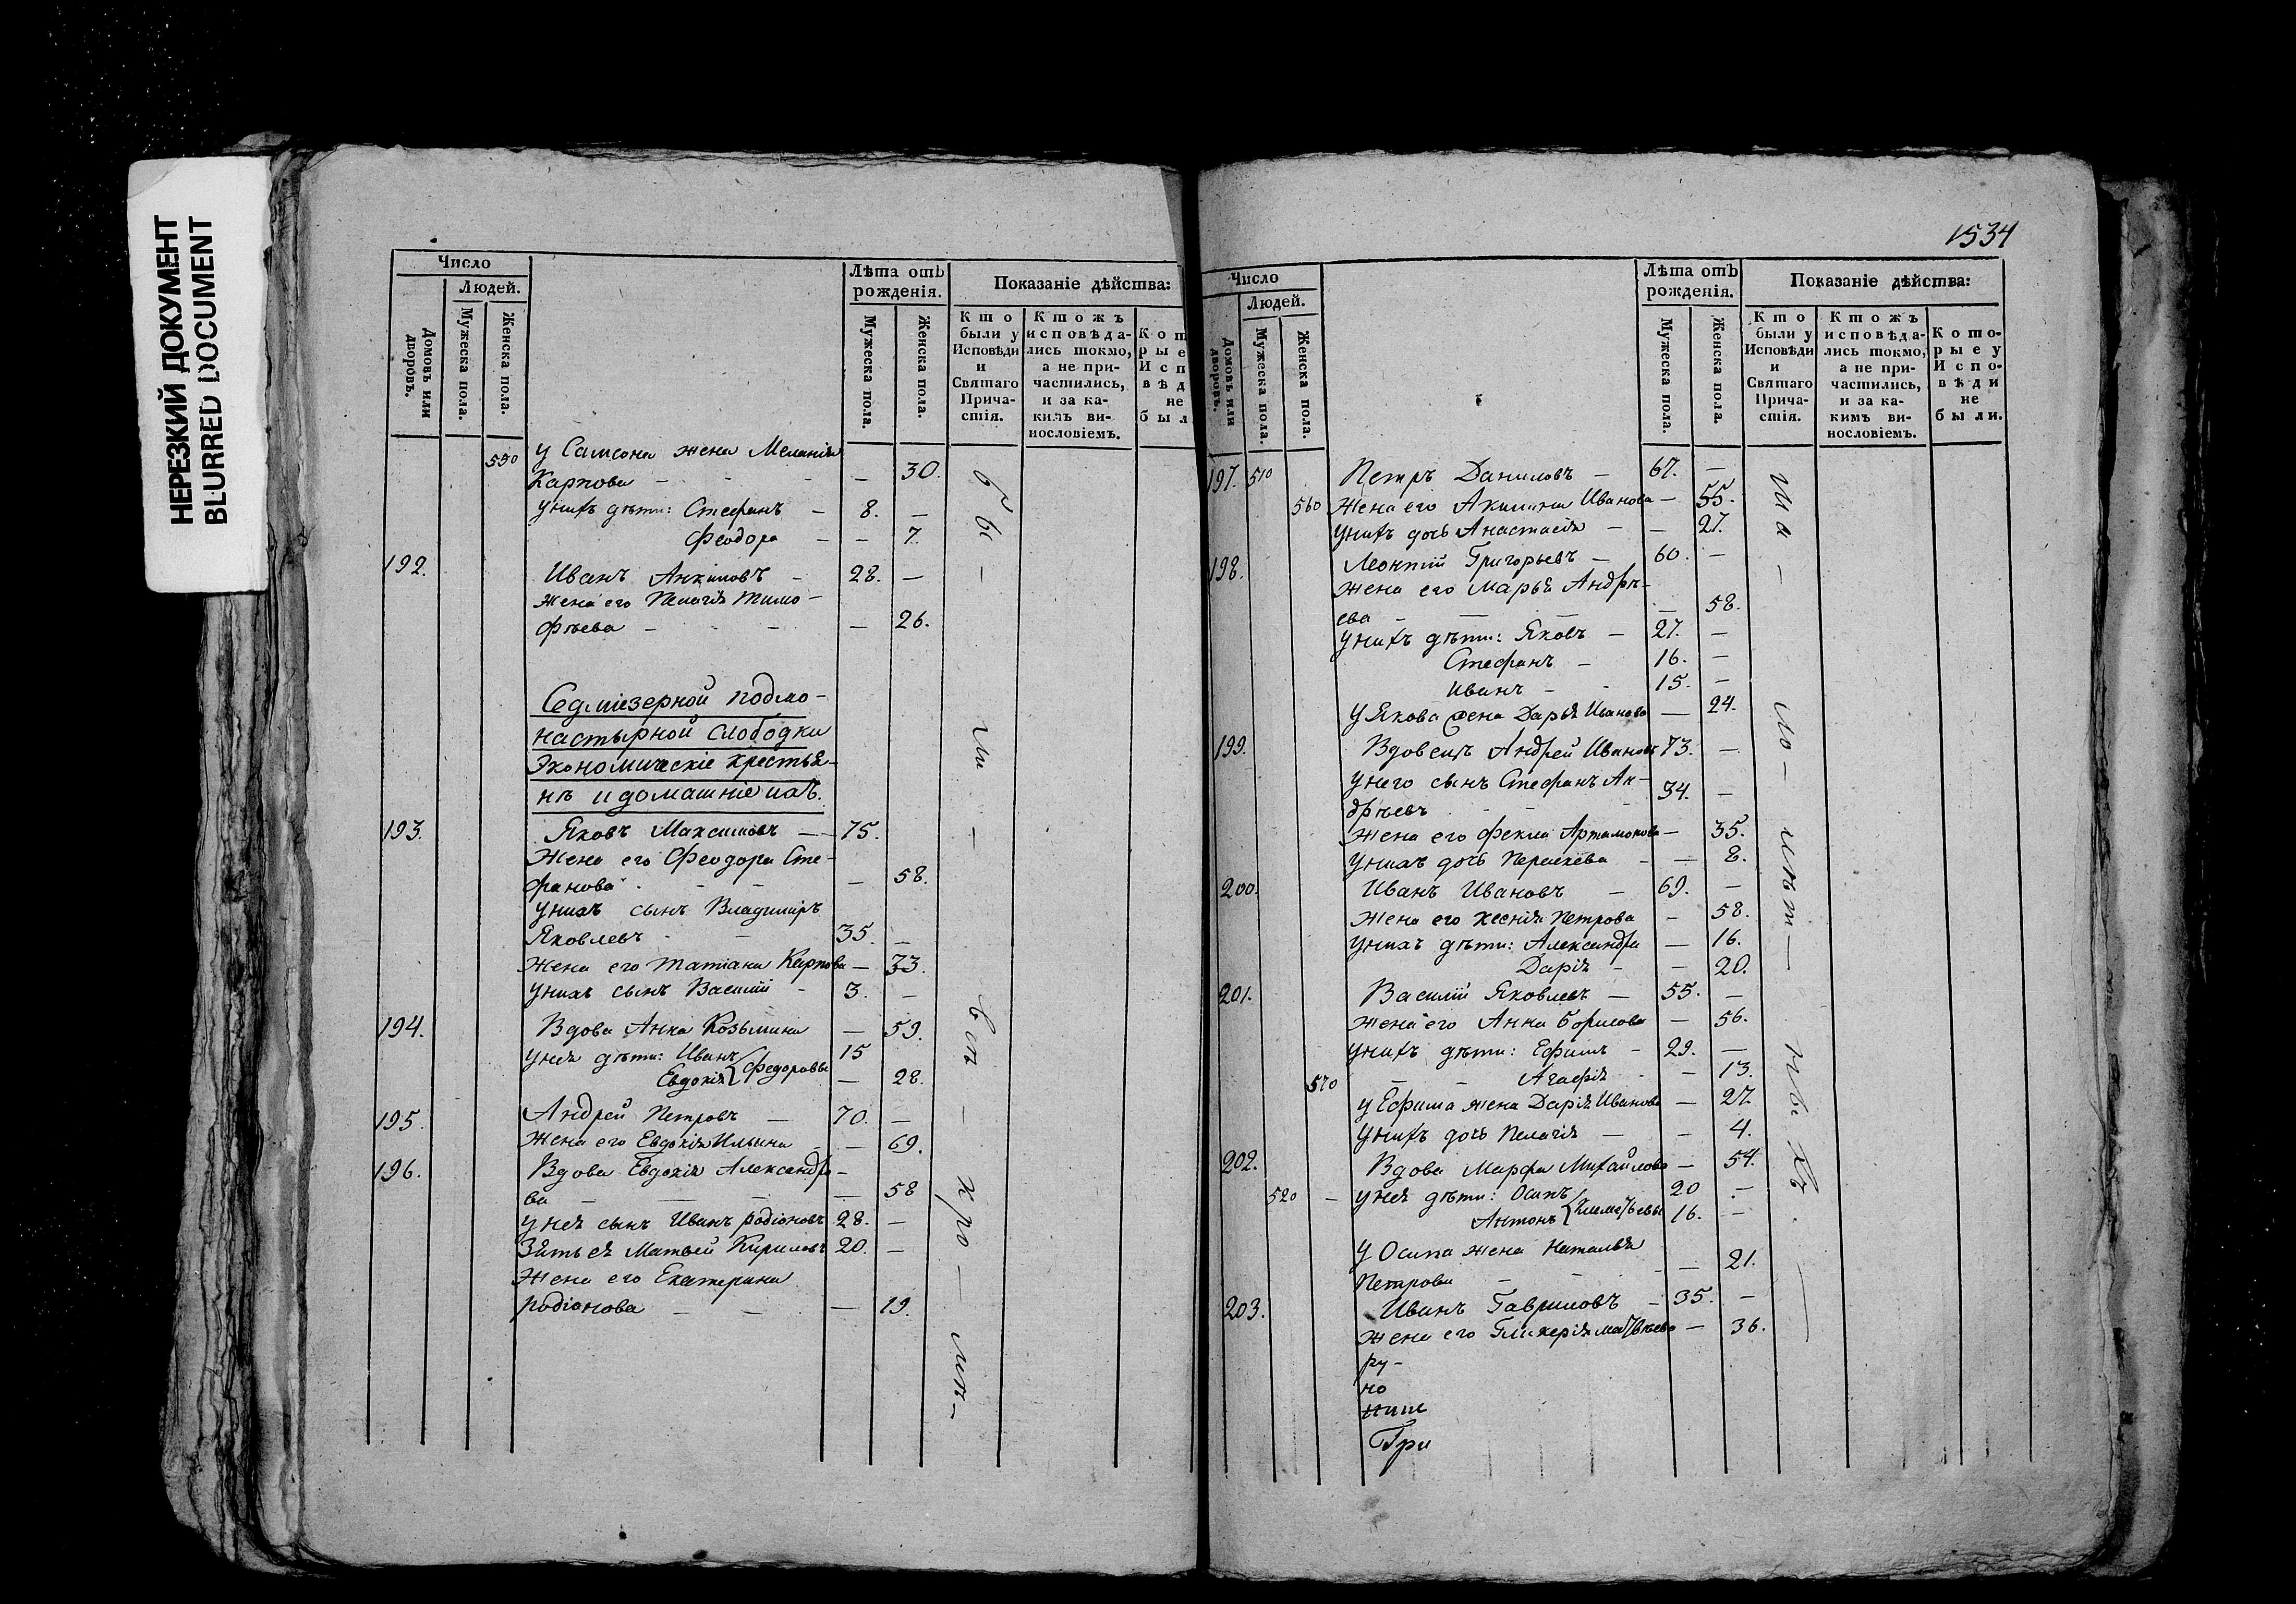 НЕРЕЗКИЙ ДОКУМЕНТ
BLURRED DOCUMENT
Число
Людей.
Домовъ или дворовъ.
Мужеска пола.
Женска пола.
Лѣта отъ рожденія.
Мужеска пола.
Женска пола.
Показаніе дѣйства:
Кто были у Исповѣди и Святаго Причастія.
Ктожъ исповѣдались токмо, а не причастились, и за какимъ винословіемъ.
Кот
рые
Исп
вѣд
не
был
550 у Самсона жена Меланія
Карпова — — 30.
у нихъ дѣти: Стефанъ — 8. —
Феодора — — 7.
192. Иванъ Акимовъ — 28. —
жена его Пелагія Тимо-
фѣева — — 26.
Седміезерной подмо-
настырной слободки
Экономическіе крестья-
нѣ и домашніе ихъ.
193. Яковъ Максимовъ — 75.
Жена его Феодора Сте-
фанова — — 58.
у нихъ сынъ Владимиръ
Яковлевъ — 35. —
жена его Татіана Карпова — 33.
у нихъ сынъ Василій — 3. —
194. Вдова Анна Козьмина — 59.
у нея дѣти: Иванъ 15
Евдокія } Федоровы — 28.
195. Андрей Петровъ — 70. —
жена его Евдокія Ильина — 69.
196. Вдова Евдокія Александро-
ва — — 58
у нея сынъ Иванъ Родіоновъ 28. —
Зять ея Матвей Кириловъ 20. —
жена его Екатерина
Родіонова — — 19.
бы — ли — вси — кро — мѣ —
1534
Число
Людей.
Домовъ или дворовъ.
Мужеска пола.
Женска пола.
Лѣта отъ рожденія.
Мужеска пола.
Женска пола.
Показаніе дѣйства:
Кто были у Исповѣди и Святаго Причастія.
Ктожъ исповѣдались токмо, а не причастились, и за какимъ винословіемъ.
Которые у Исповѣди не были.
197. 510 Петръ Даниловъ — 67. —
560 Жена его Акилина Иванова — 55.
у нихъ дочь Анастасія — — 27.
198. Леонтій Григорьевъ — 60. —
жена его Марья Андрѣ-
ева — — 58.
у нихъ дѣти: Яковъ — 27. —
Стефанъ — 16. —
Иванъ — 15. —
у Якова жена Дарья Иванова — 24.
199. Вдовецъ Андрей Ивановъ 73. —
у него сынъ Стефанъ Ан-
дрѣевъ 34. —
жена его Фекла Артамонова — 35.
у нихъ дочь Параскева — — 8.
200. Иванъ Ивановъ — 69. —
жена его Ксенія Петрова — 58.
у нихъ дѣти: Александра — 16.
Дарія — — 20.
201. Василій Яковлевъ — 55. —
жена его Анна Борисова — 56.
у нихъ дѣти: Ефимъ — 29. —
570 — — Агафія — — 13.
у Ефима жена Дарія Иванова — 27
у нихъ дочь Пелагія — — 4.
202. Вдова Марфа Михайлова — 54.
520 — у нея дѣти: Осипъ 20 —
Антонъ } 16. —
у Осипа жена Наталья
Петрова — — 21.
203. Иванъ Гавриловъ — 35. —
жена его Гликерія Матвѣева — 36.
ру-
но
Гри
ма — ло — лѣт — ныхъ. —